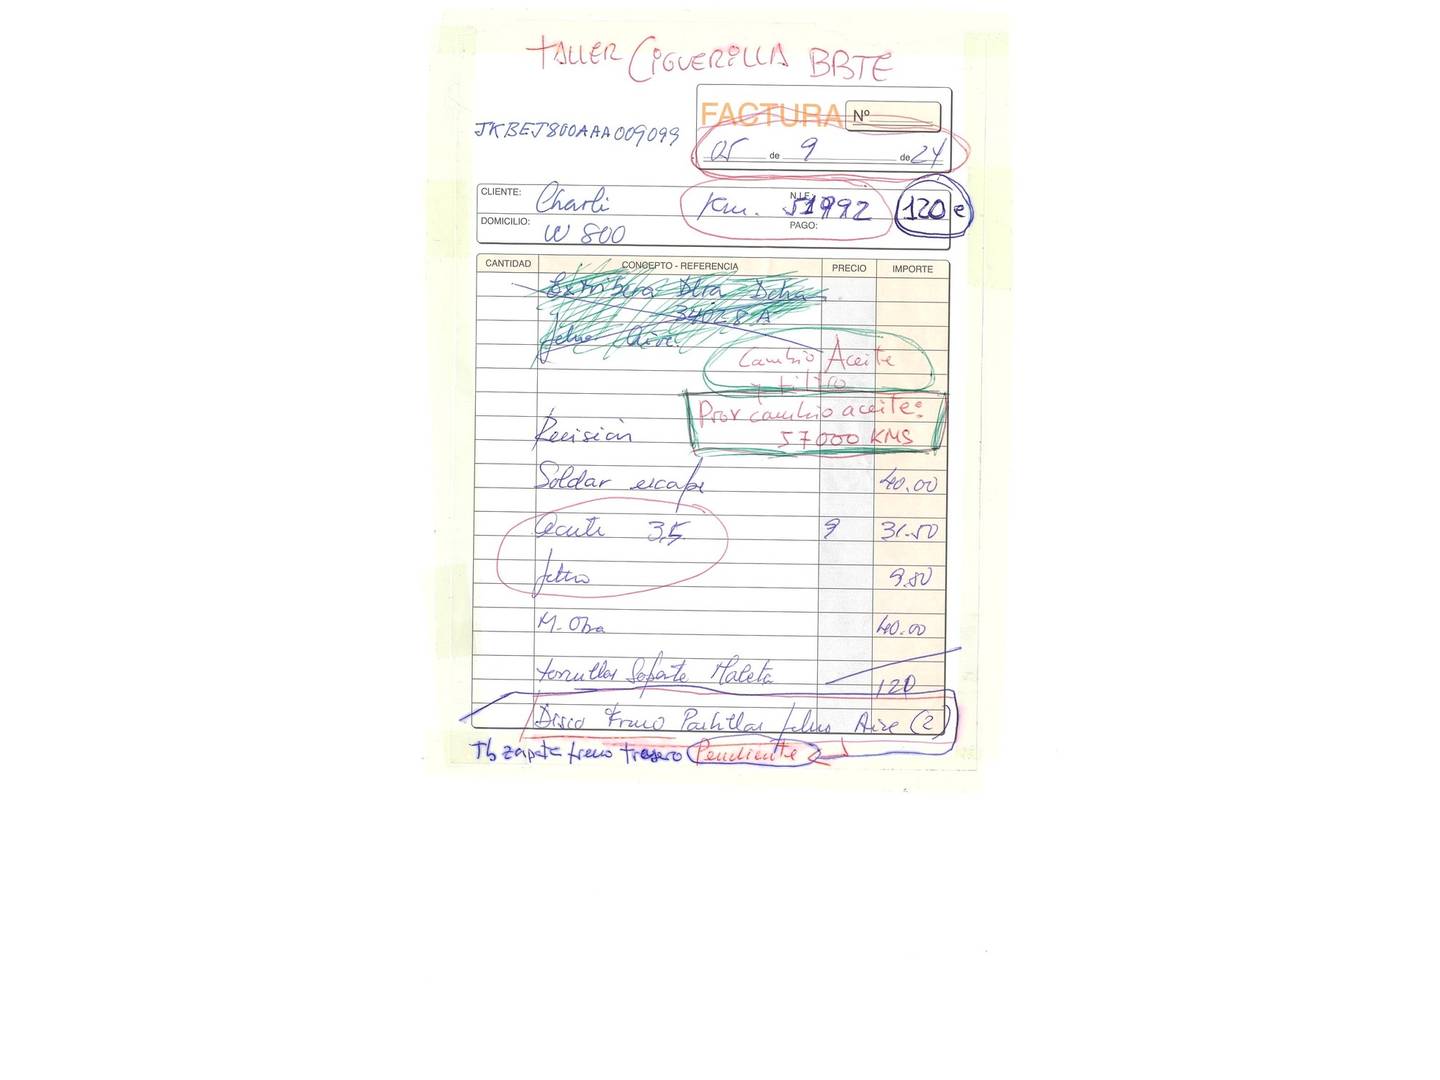 TALLER CIGUERILLA BBTE
FACTURA Nº
JKBEJ800AAA009099
05 de 9 de 24
CLIENTE: Charli
Km. 51992
N.I.F.:
120 e
DOMICILIO: W 800
PAGO:
CANTIDAD CONCEPTO - REFERENCIA PRECIO IMPORTE
Extribera Dtra Dcha
34028 A
Filtro Aire
Cambio Aceite
y filtro
Prox cambio aceite:
57000 KMS
Revisión
Soldar escape 40.00
Aceite 3,5 9 31.50
filtro 9.80
M. Obra 40.00
tornillos Soporte Maleta
120
Disco Freno Pastillas filtro Aire (2)
Tb zapata freno trasero Pendiente